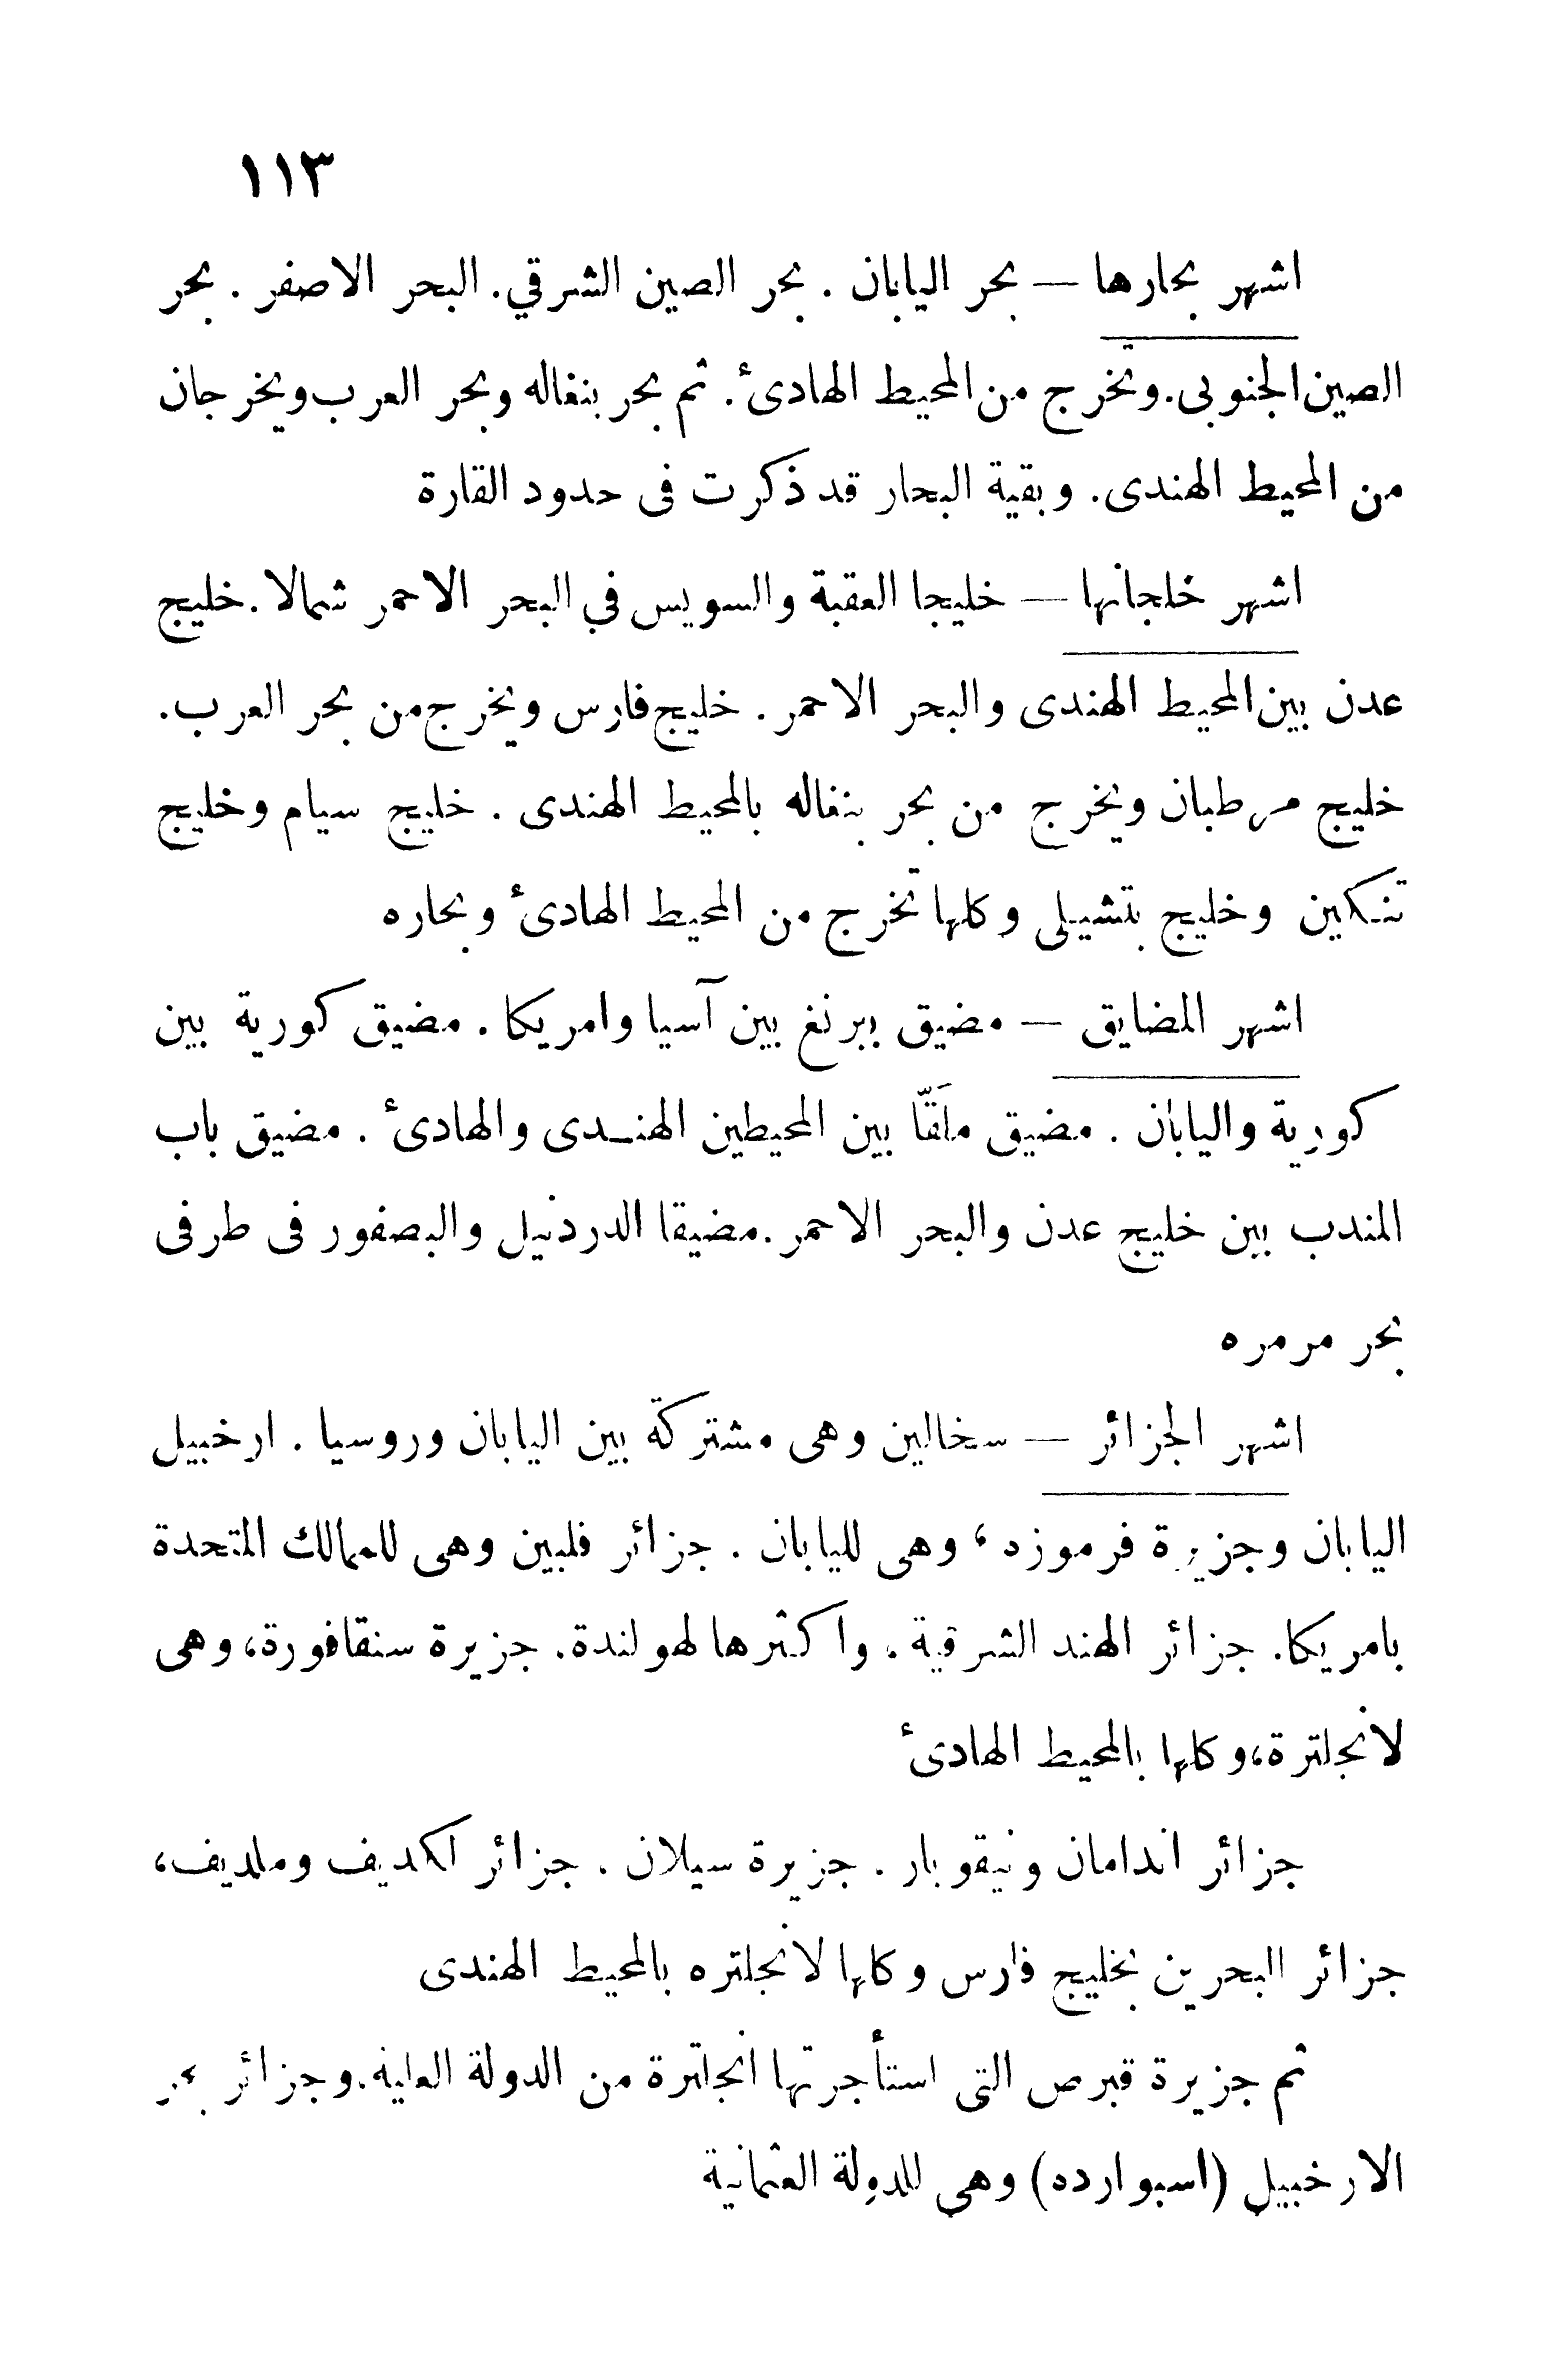 ١١٣
اشهر بحارها — بحر اليابان . بحر الصين الشرقي. البحر الاصفر . بحر
الصين الجنوبى. وتخرج من المحيط الهادىء. ثم بحر بنغاله وبحر العرب ويخرجان
من المحيط الهندى. وبقية البحار قد ذكرت فى حدود القارة
اشهر خلجانها — خليجا العقبة والسويس في البحر الاحمر شمالا. خليج
عدن بين المحيط الهندى والبحر الاحمر . خليج فارس ويخرج من بحر العرب.
خليج مرطبان ويخرج من بحر بنغاله بالمحيط الهندى . خليج سيام وخليج
تنكين وخليج بتشيلى وكلها تخرج من المحيط الهادىء وبحاره
اشهر المضايق — مضيق بيرنغ بين آسيا وامريكا . مضيق كورية بين
كورية واليابان . مضيق ملَقّا بين المحيطين الهندى والهادىء . مضيق باب
المندب بين خليج عدن والبحر الاحمر . مضيقا الدردنيل والبصفور فى طرفى
بحر مرمره
اشهر الجزائر — سخالين وهى مشتركة بين اليابان وروسيا . ارخبيل
اليابان وجزيرة فرموزه ، وهى لليابان . جزائر فلبين وهى للممالك المتحدة
بامريكا. جزائر الهند الشرقية . واكثرها لهولندة. جزيرة سنقافورة، وهى
لانجلترة، وكلها بالمحيط الهادىء
جزائر اندامان ونيقوبار . جزيرة سيلان . جزائر لكديف وملديف،
جزائر البحرين بخليج فارس وكلها لانجلتره بالمحيط الهندى
ثم جزيرة قبرص التى استأجرتها انجلترة من الدولة العلية. وجزائر بحر
الارخبيل (اسبوارده) وهى للدولة العثمانية